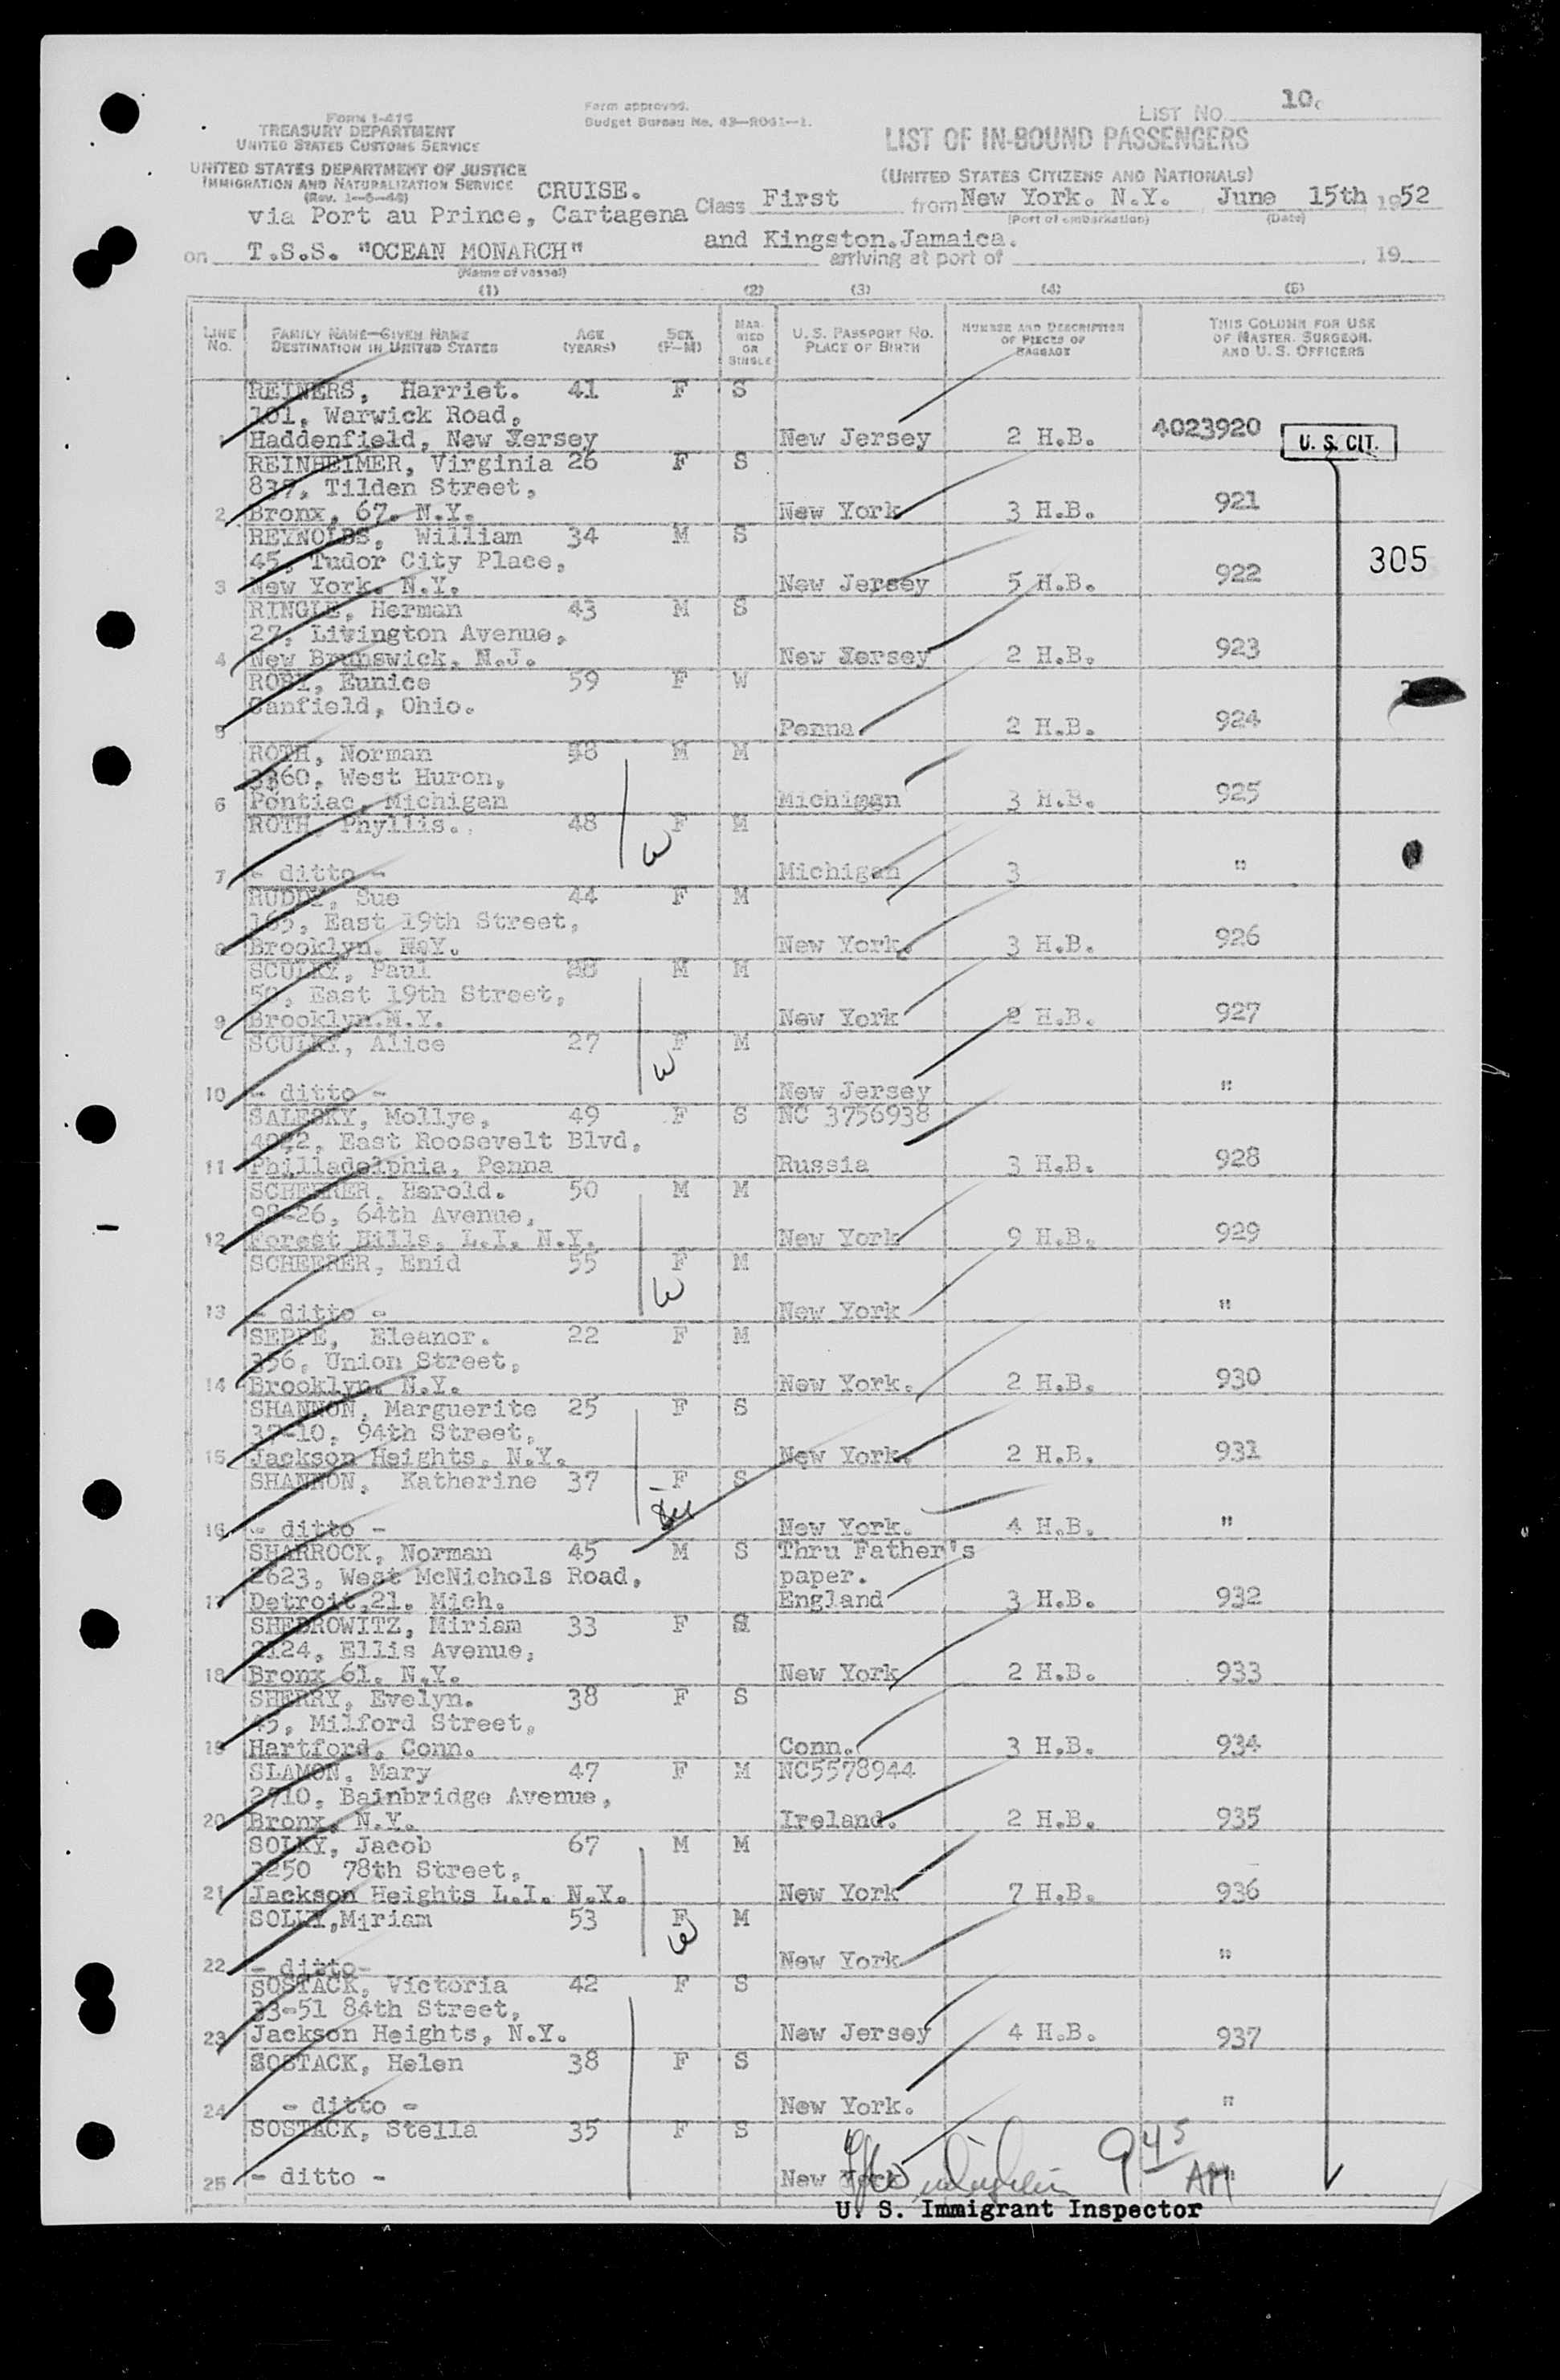 FORM I-415
TREASURY DEPARTMENT
UNITED STATES CUSTOMS SERVICE
UNITED STATES DEPARTMENT OF JUSTICE
IMMIGRATION AND NATURALIZATION SERVICE
Form approved.
Budget Bureau No. 43—R061—1.
LIST NO. 10.
LIST OF IN-BOUND PASSENGERS
(UNITED STATES CITIZENS AND NATIONALS)
CRUISE.
via Port au Prince, Cartagena Class First from New York. N.Y. June 15th 1952
(Port of embarkation) (Date)
and Kingston.Jamaica.
on T.S.S. "OCEAN MONARCH" arriving at port of 19
(Name of vessel)
(1) (2) (3) (4) (5)
LINE No. FAMILY NAME—GIVEN NAME DESTINATION IN UNITED STATES AGE (YEARS) SEX (F—M) MARRIED OR SINGLE U. S. PASSPORT NO. PLACE OF BIRTH NUMBER AND DESCRIPTION OF PIECES OF BAGGAGE THIS COLUMN FOR USE OF MASTER, SURGEON, AND U. S. OFFICERS
REINERS, Harriet. 41 F S
101, Warwick Road,
1 Haddenfield, New Jersey New Jersey 2 H.B. 4023920 U. S. CIT.
REINHEIMER, Virginia 26 F S
837, Tilden Street,
2 Bronx, 67. N.Y. New York 3 H.B. 921
REYNOLDS, William 34 M S
45, Tudor City Place, 305
3 New York. N.Y. New Jersey 5 H.B. 922
RINGLE, Herman 43 M S
27, Livington Avenue,
4 New Brunswick, N.J. New Jersey 2 H.B. 923
ROBY, Eunice 59 F W
Canfield, Ohio.
5 Penna. 2 H.B. 924
ROTH, Norman 58 M M
3360, West Huron,
6 Pontiac, Michigan Michigan 3 H.B. 925
ROTH, Phyllis. 48 F M
W
7 - ditto - Michigan 3 "
RUDDY, Sue 44 F M
165, East 19th Street,
8 Brooklyn. N.Y. New York. 3 H.B. 926
SCULKY, Paul 28 M M
50, East 19th Street,
9 Brooklyn.N.Y. New York 2 H.B. 927
SCULKY, Alice 27 F M
W
10 - ditto - New Jersey "
SALESKY, Mollye, 49 F S NC 3756938
4022, East Roosevelt Blvd,
11 Philladelphia, Penna Russia 3 H.B. 928
SCHEERER, Harold. 50 M M
98-26, 64th Avenue,
12 Forest Hills, L.I. N.Y. New York 9 H.B. 929
SCHEERER, Enid 55 F M
W
13 - ditto - New York "
SEPPE, Eleanor. 22 F M
356, Union Street,
14 Brooklyn. N.Y. New York. 2 H.B. 930
SHANNON, Marguerite 25 F S
37-10, 94th Street,
15 Jackson Heights, N.Y. New York. 2 H.B. 931
SHANNON, Katherine 37 F S
16 - ditto - New York. 4 H.B. "
SHARROCK, Norman 45 M S Thru Father's
2623, West McNichols Road, paper.
17 Detroit,21. Mich. England 3 H.B. 932
SHEDROWITZ, Miriam 33 F
2124, Ellis Avenue,
18 Bronx 61. N.Y. New York 2 H.B. 933
SHERRY, Evelyn. 38 F S
45, Milford Street,
19 Hartford, Conn. Conn. 3 H.B. 934
SLAMON, Mary 47 F M NC5578944
2710, Bainbridge Avenue,
20 Bronx, N.Y. Ireland. 2 H.B. 935
SOLKY, Jacob 67 M M
3250 78th Street,
21 Jackson Heights L.I. N.Y. New York 7 H.B. 936
SOLKY,Miriam 53 F M
W
22 - ditto- New York "
SOSTACK, Victoria 42 F S
33-51 84th Street,
23 Jackson Heights, N.Y. New Jersey 4 H.B. 937
SOSTACK, Helen 38 F S
24 - ditto - New York. "
SOSTACK, Stella 35 F S
25 - ditto - New York 9 45 AM
U. S. Immigrant Inspector